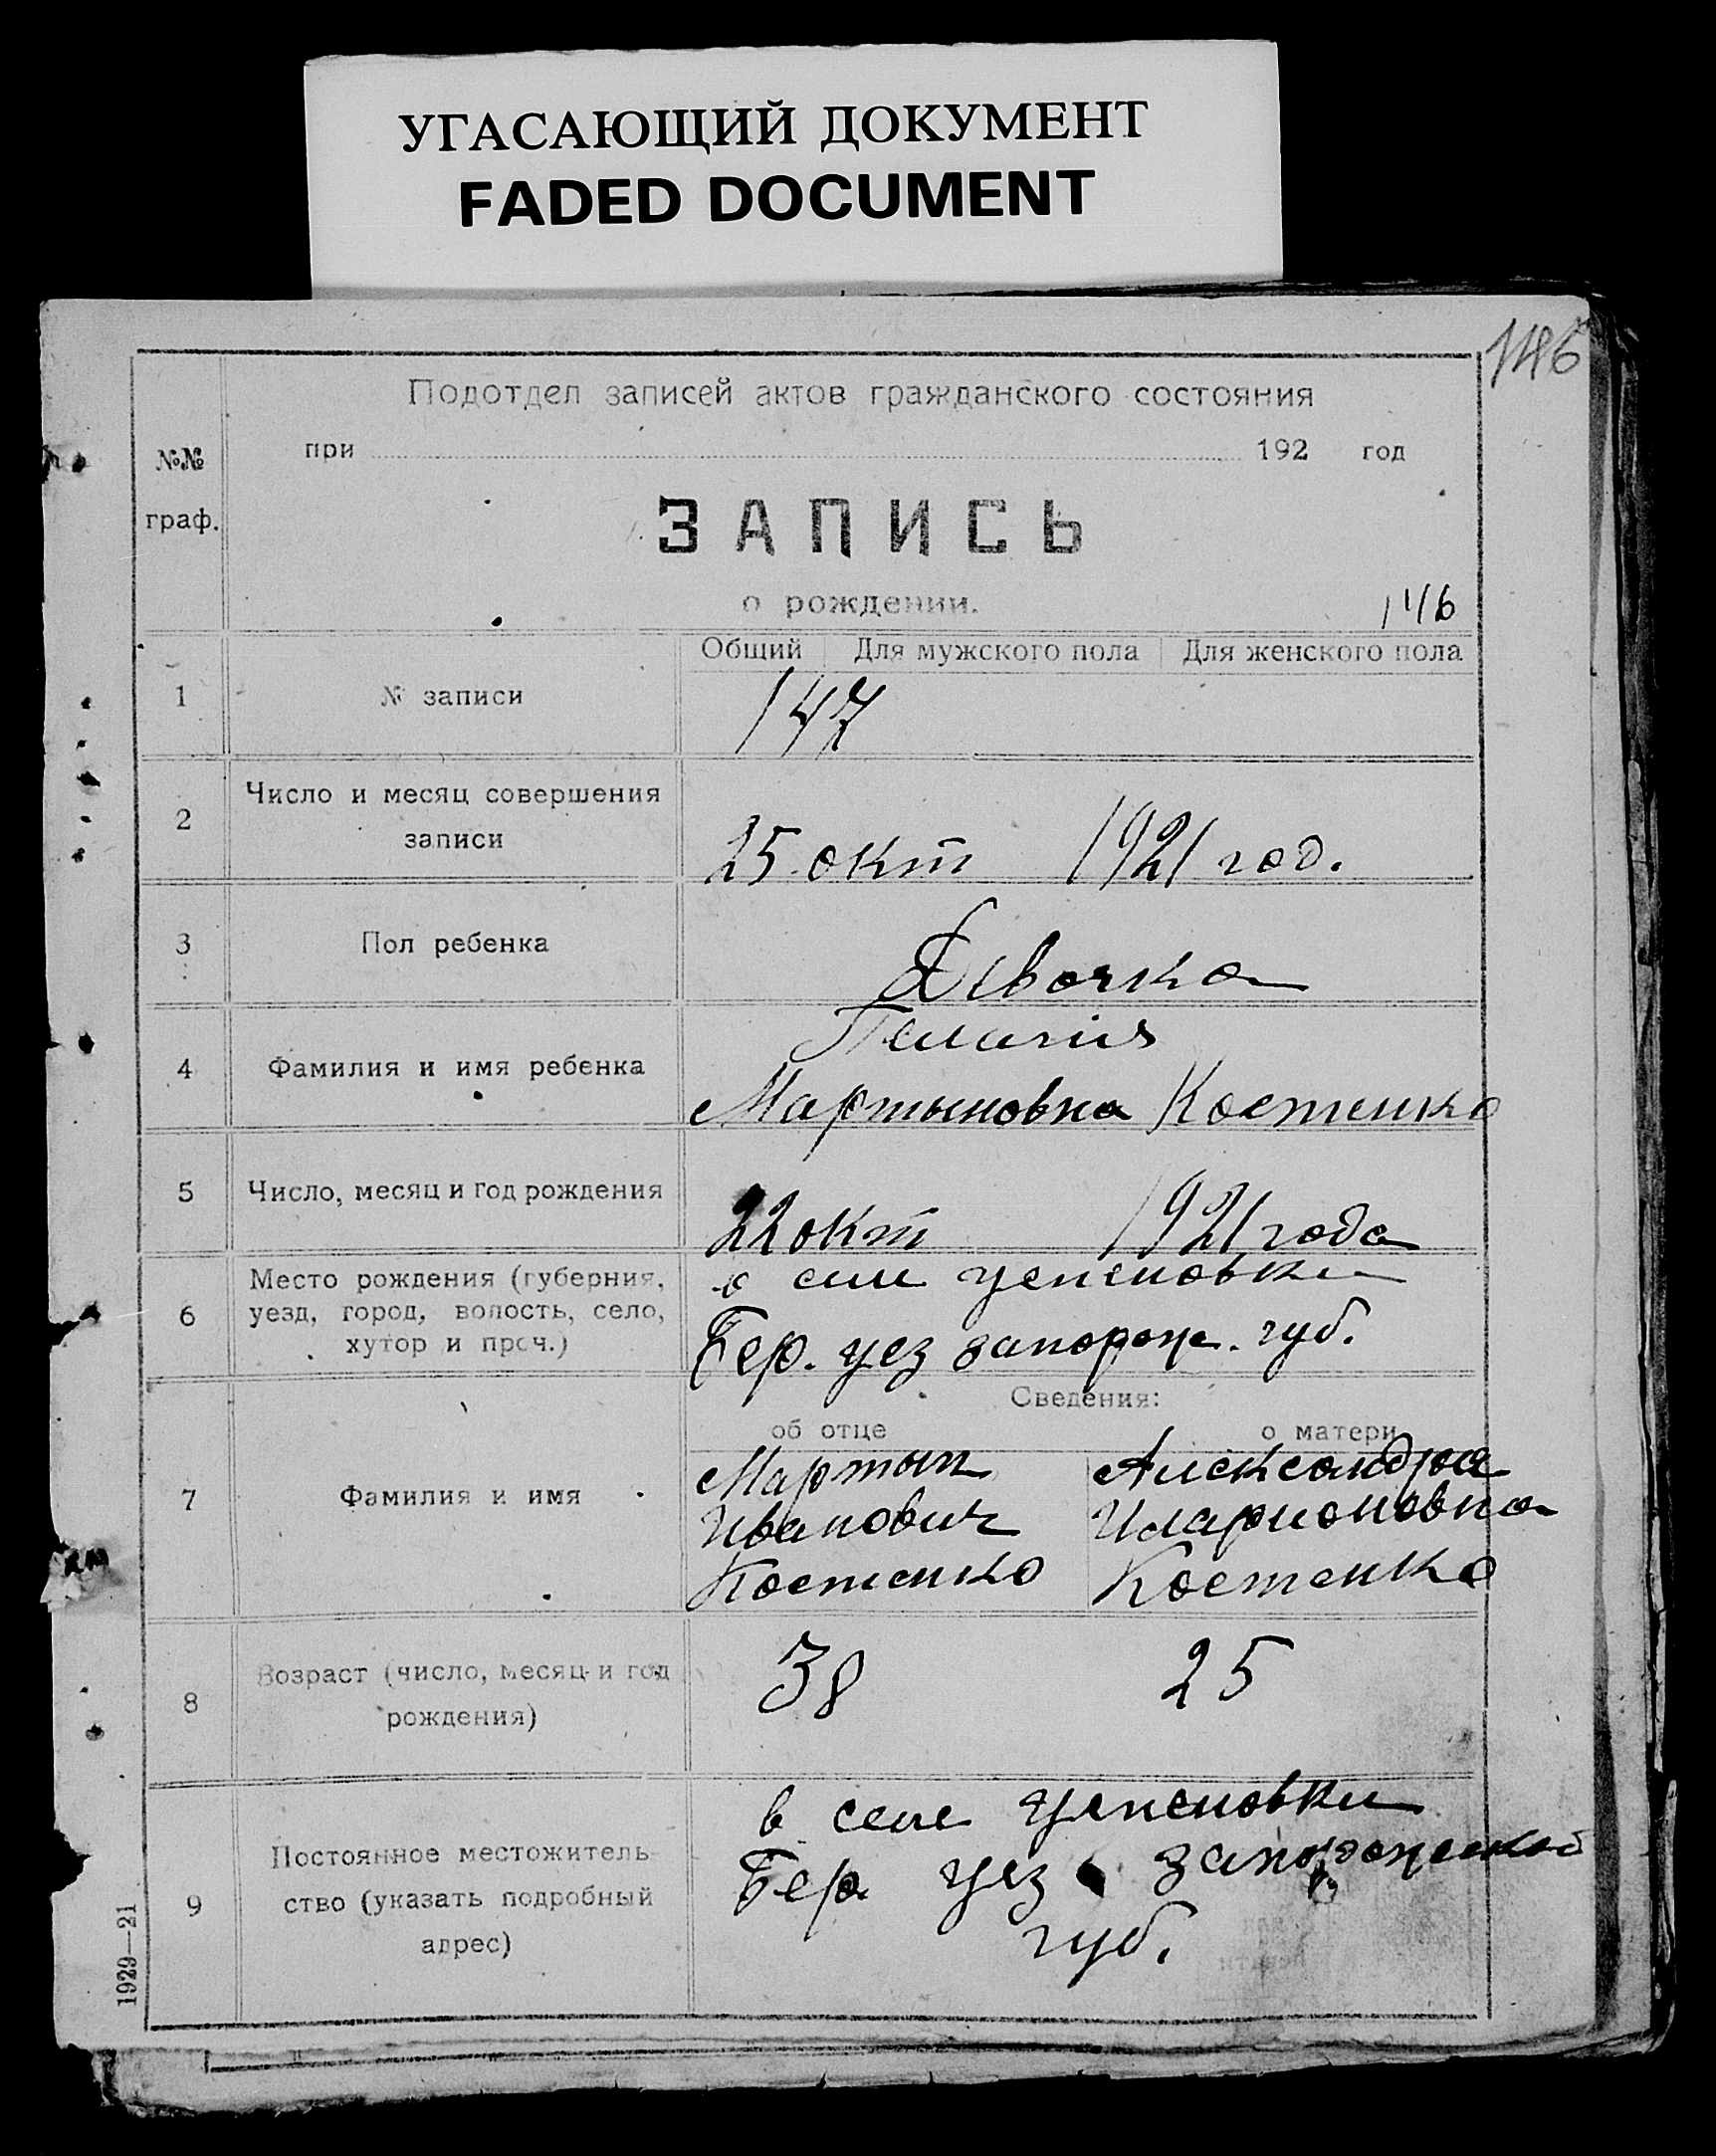 УГАСАЮЩИЙ ДОКУМЕНТ
FADED DOCUMENT
146
Подотдел записей актов гражданского состояния
при 192 год
№№
граф.
ЗАПИСЬ
о рождении.
146
Общий Для мужского пола Для женского пола
1 № записи 147
2 Число и месяц совершения
записи
25 окт 1921 год.
3 Пол ребенка Девочка
Пелагия
4 Фамилия и имя ребенка
Мартыновна Костенко
5 Число, месяц и год рождения
22 окт 1921 года
6 Место рождения (губерния,
уезд, город, волость, село,
хутор и проч.)
в селе Успеновки
Бер. уез запорож. губ.
Сведения:
об отце о матери
7 Фамилия и имя
Мартын Александра
Иванович Иларионовна
Костенко Костенко
8 Возраст (число, месяц и год
рождения)
38 25
9 Постоянное местожитель-
ство (указать подробный
адрес)
в селе Успеновки
Бер уез запорожской
губ.
1929—21